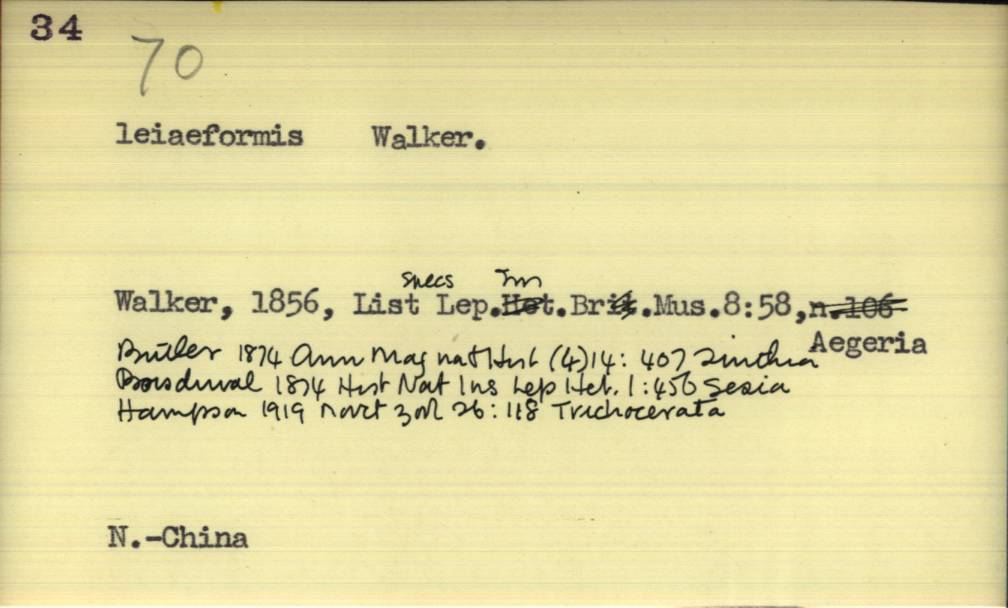 34
70
leiaeformis Walker.
specs Inn
Walker, 1856, List Lep.Het.Brit.Mus.8:58,n.106
Aegeria
Butler 1874 Ann Mag nat Hist (4)14: 407
Boisduval 1874 Hist Nat Ins Lep Het. 1:450 Sesia
Hampson 1919 novit zool 26:118 Trichocerata
N.-China